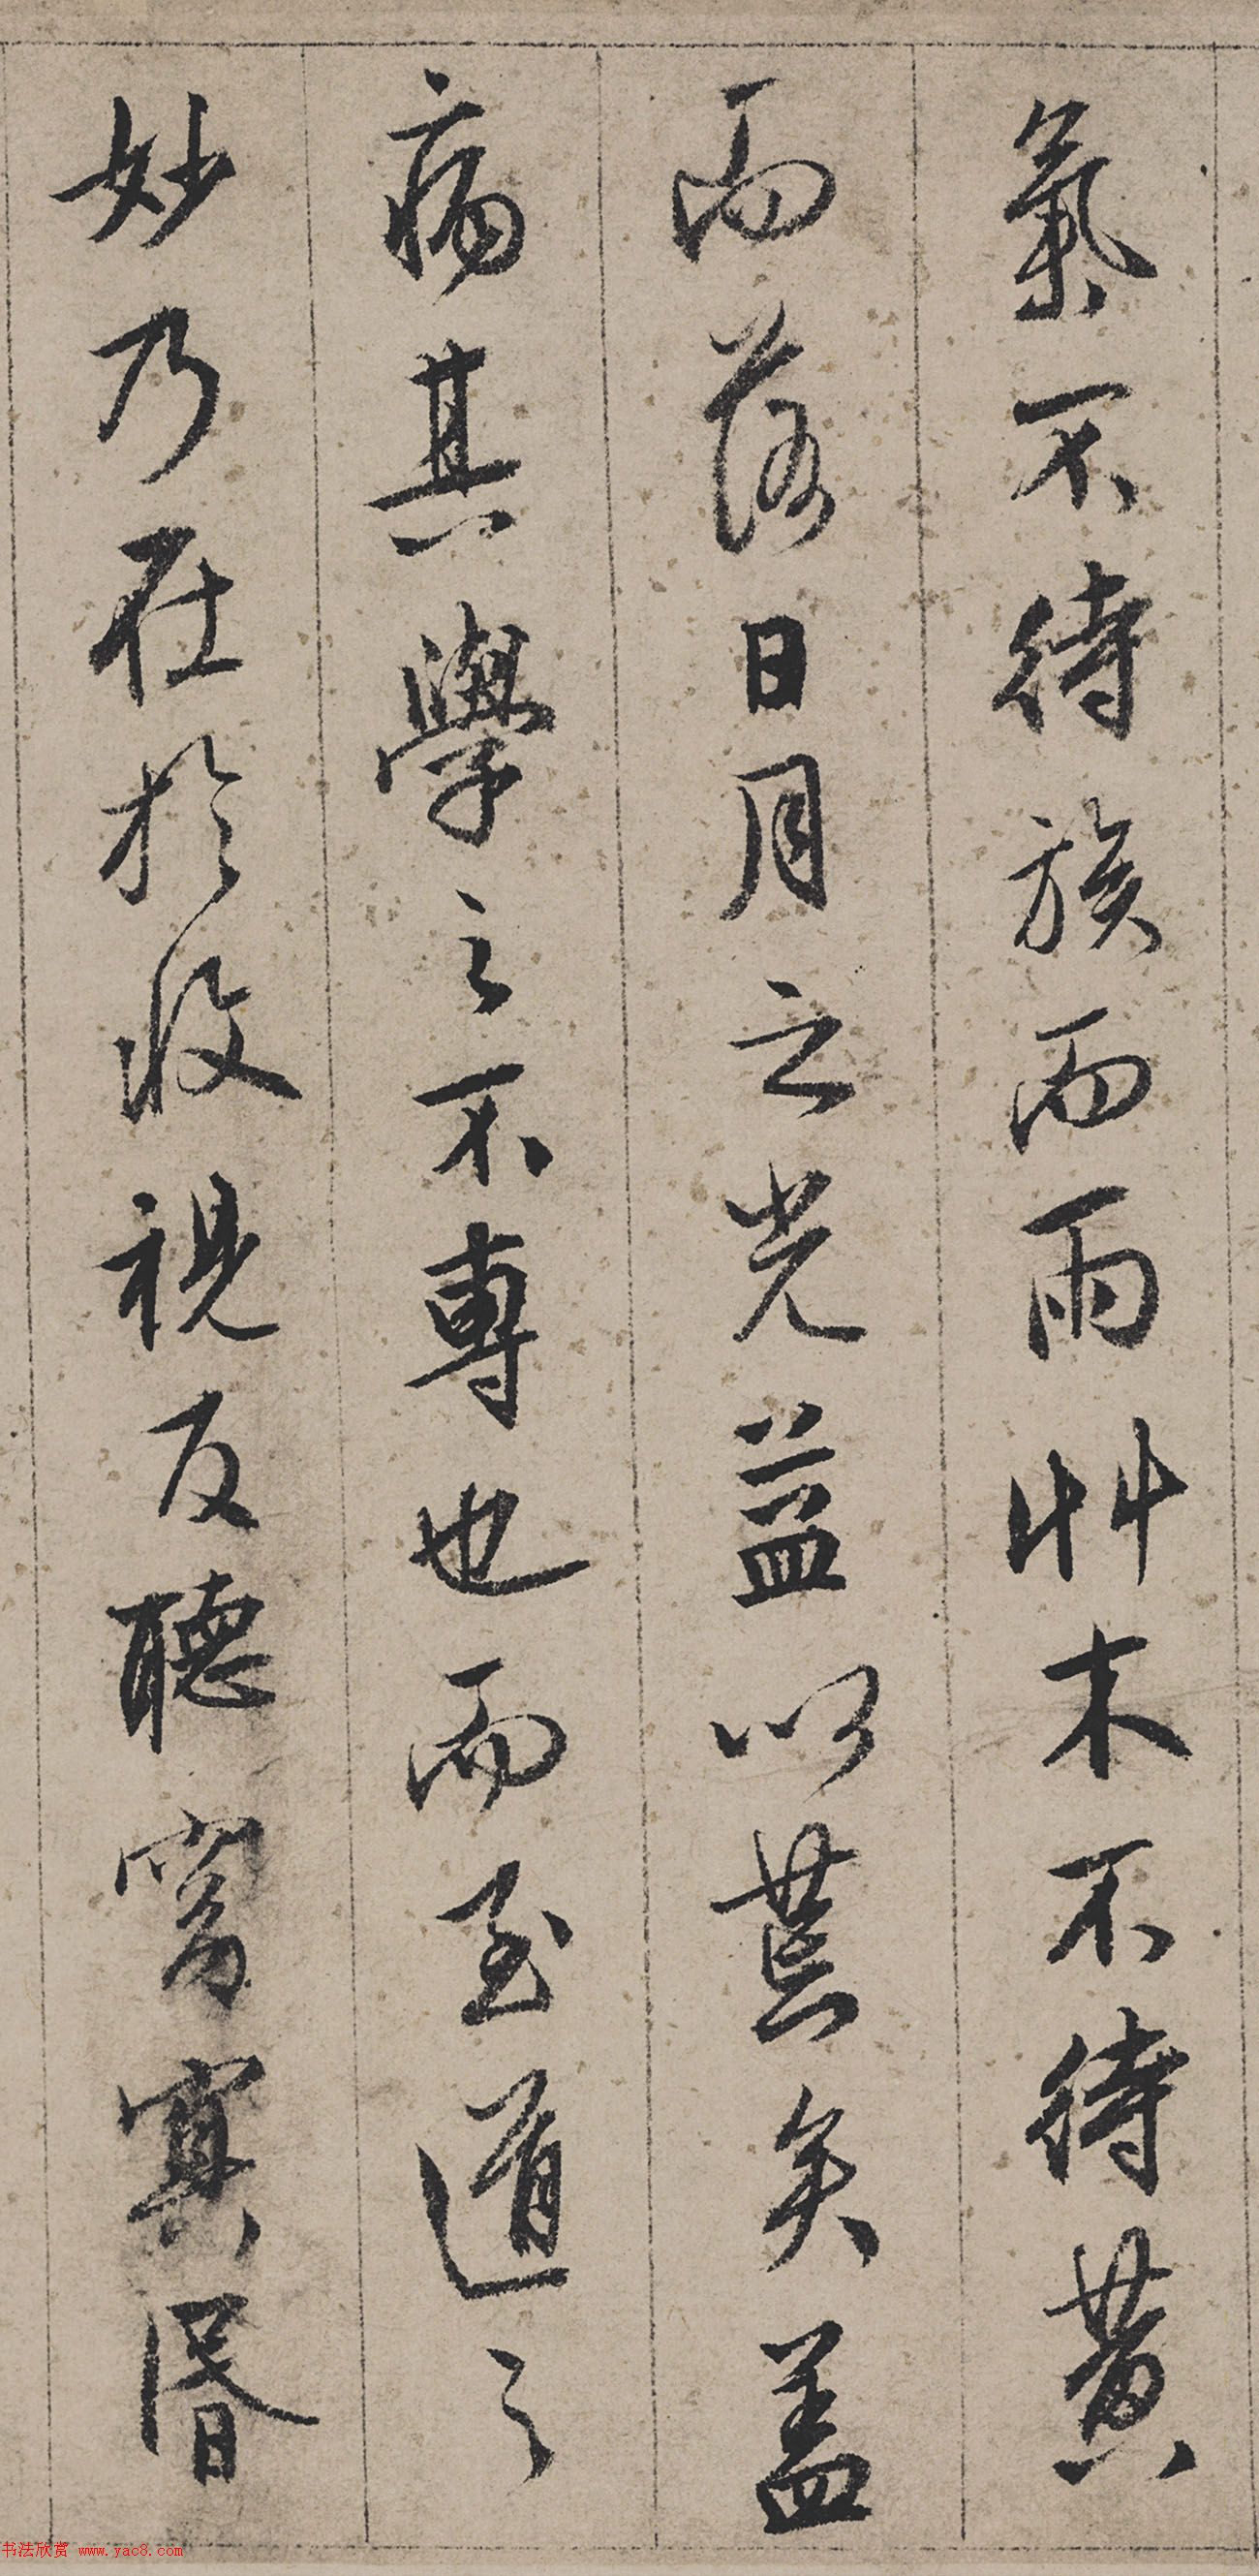 氣不待族而雨艸木不待黄
而落日月之光益以荒矣盖
病其學之不專也而至道之
妙乃在於收視反聽窈冥昬
书法欣赏 www.yac8.com